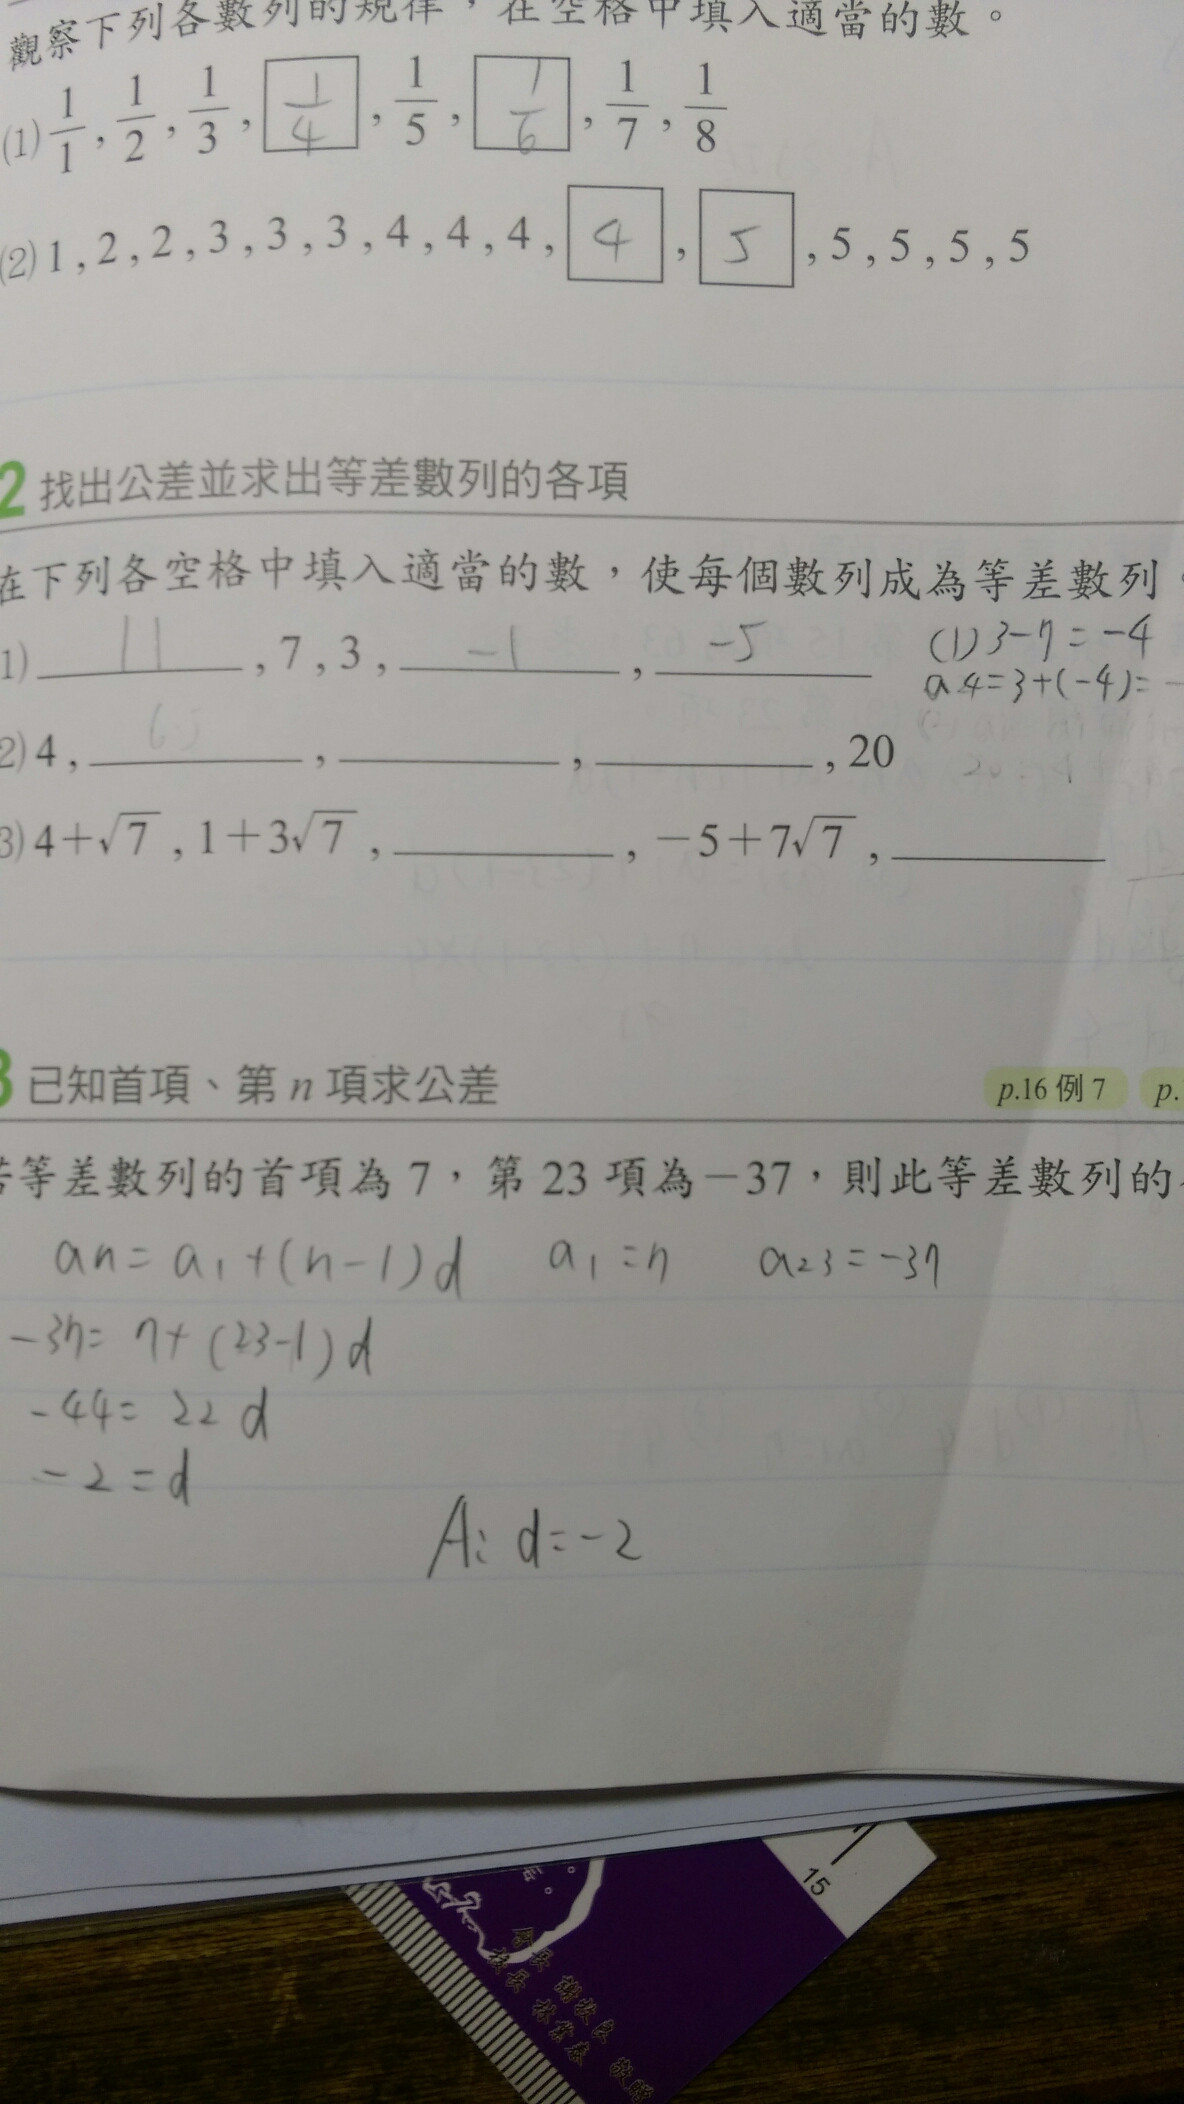 觀察下列各數列的規律，在空格中填入適當的數。
(1) 1/1 , 1/2 , 1/3 , 1/4 , 1/5 , 1/6 , 1/7 , 1/8
(2) 1 , 2 , 2 , 3 , 3 , 3 , 4 , 4 , 4 , 4 , 5 , 5 , 5 , 5 , 5
2 找出公差並求出等差數列的各項
在下列各空格中填入適當的數，使每個數列成為等差數列。
1) 11 , 7 , 3 , -1 , -5
(1) 3-7=-4
a4=3+(-4)=-
2) 4 , ____ , ____ , ____ , 20
3) 4+√7 , 1+3√7 , ____ , -5+7√7 , ____
3 已知首項、第 n 項求公差 p.16 例 7 p.
若等差數列的首項為 7，第 23 項為-37，則此等差數列的
an=a1+(n-1)d a1=7 a23=-37
-37=7+(23-1)d
-44=22d
-2=d
A: d=-2
15